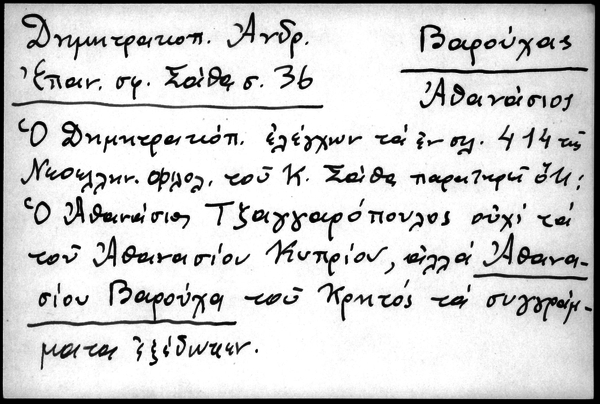 Δημητρακοπ. Ἀνδρ.
Βαρούχας
Ἐπαν. σφ. Σάθα σ. 36
Ἀθανάσιος
Ὁ Δημητρακόπ. ἐλέγχων τά ἐν σελ. 414 τῆς
Νεοελλην. Φιλολ. τοῦ Κ. Σάθα παρατηρεῖ ὅτι:
Ὁ Ἀθανάσιος Τζαγγαρόπουλος οὐχί τά
τοῦ Ἀθανασίου Κυπρίου, ἀλλά Ἀθανα-
σίου Βαρούχα τοῦ Κρητός τά συγγράμ-
ματα ἐξέδωκεν.